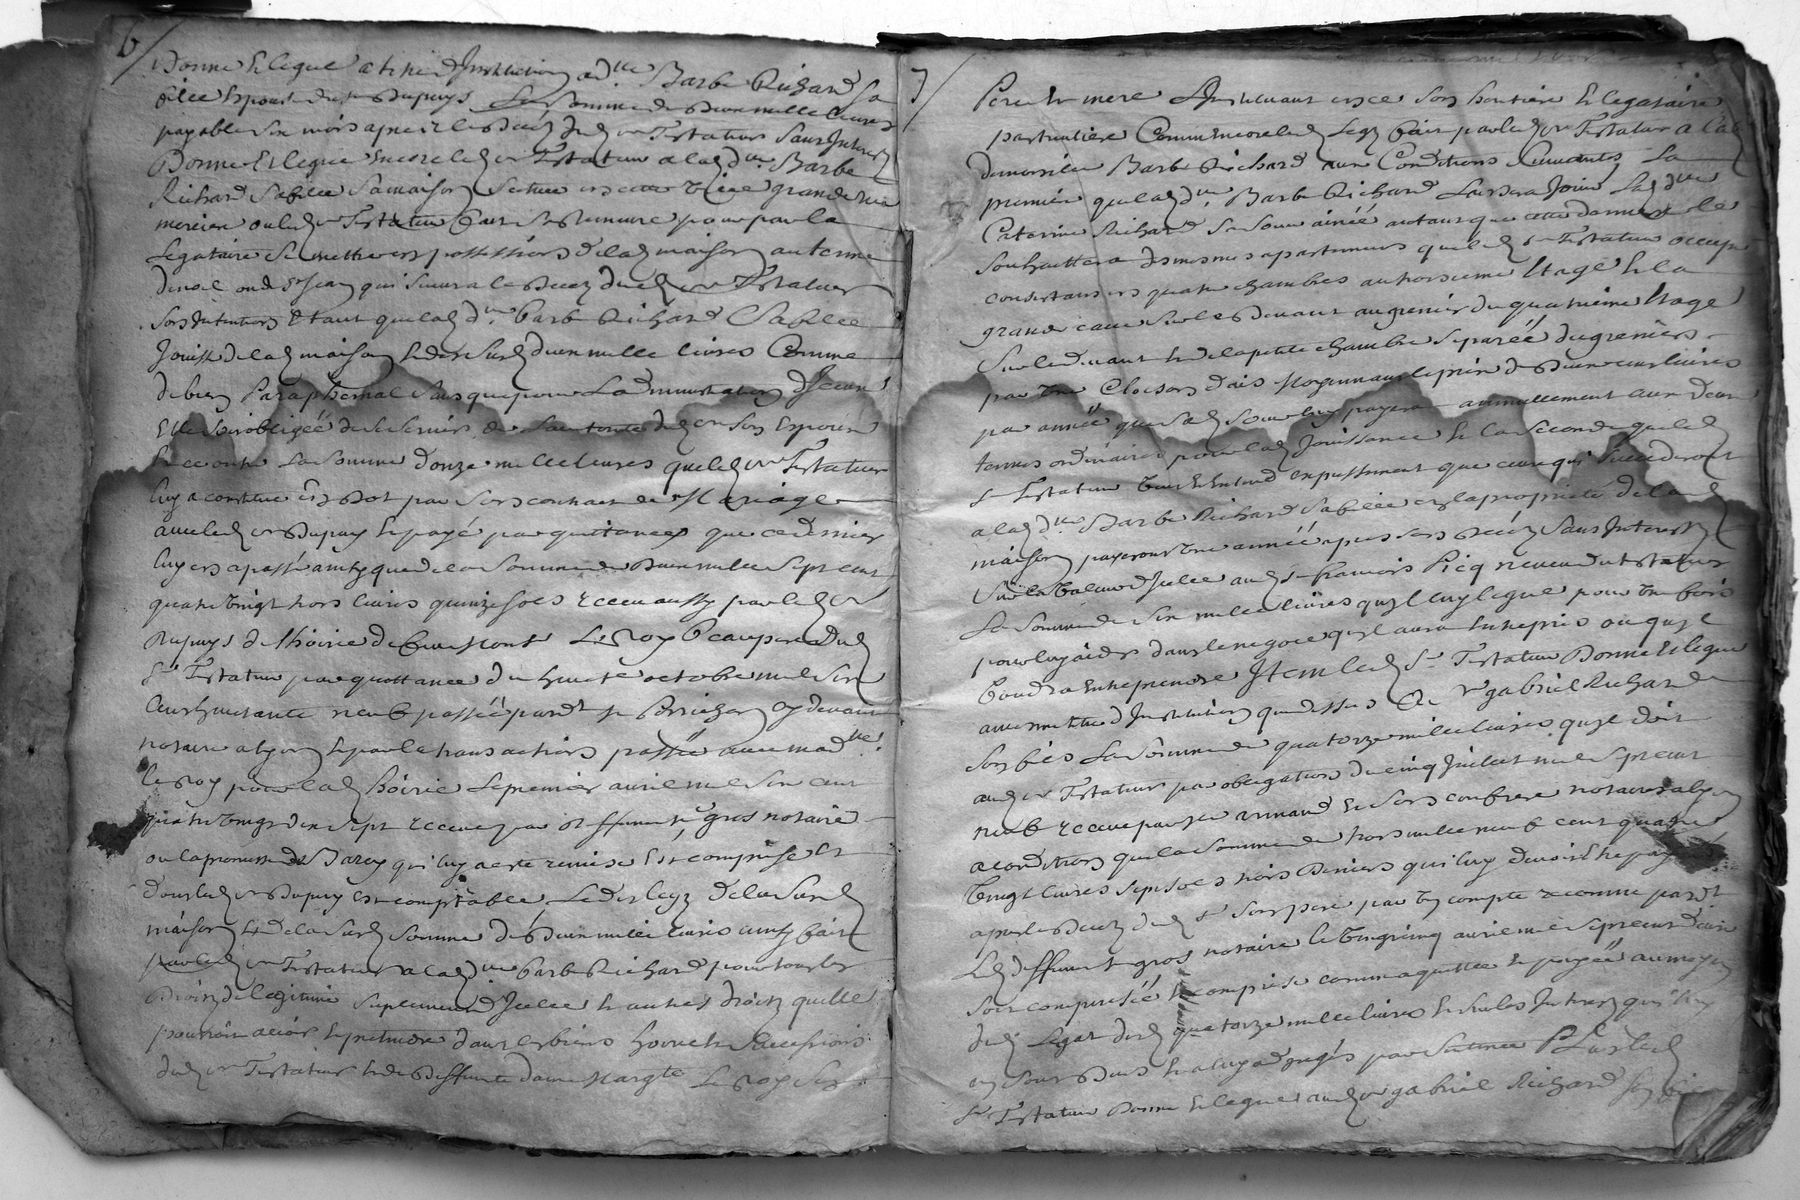 6/
Donne et legue a titre d'Institution a dlle Barbe Richard sa
fille Epouse dud sr Dupuys La somme de Deux mille livres
payable six mois apres le Deceds dud sr Testateur Sans Interest
Donne et legue encore led sr Testateur a lad dlle Barbe
Richard sa fille sa maison scituee en cette ville grande rue
merciere ou led sr Testateur fait sa demeure pour par la
Legataire se mettre en possession de lad maison au terme
de noel ou de st Jean qui suivra le Deceds dud sr Testateur
Son Intention Etant que lad dlle Barbe Richard Sa fille
Jouisse de lad maison et desd Deux mille livres Comme
de bien Paraphernal sans que pour L'administration d'Iceux
Elle soit obligée de se servir de L'autorité dud sr son Epoux
Et ce outre La somme d'onze mille livres que led sr Testateur
luy a constitué en Dot par son contract de Mariage
avec led sr Dupuys et payé par quittances que ce dernier
luy en a passé ainsy que de la somme de Deux mille sept cent
quatre vingt trois livres quinze sols receue aussy par led sr
Dupuys de l'hoirie de Le Roy beaupere dud
sr Testateur par quittance du huit octobre mil six
cent nonante neuf passée pardt Me Perrichon cy devant
notaire a lyon et par la transaction passée avec madlle
le Roy pour lad hoirie le premier avril mil six cent
quatre vingt dix sept receue par deffunt Me gros notaire
ou la promesse de Baroy qui luy a esté remise Est comprise Et
dont led sr Dupuy est comptable Lesd legs de la susd
maison et de la susd somme de Deux mille livres ainsy fait
par led sr Testateur a lad dlle Barbe Richard pour tous les
Droits de legitime suplement d'Icelle et autres droits qu'elle
pourroit avoir et pretendre dans les biens hoirie et successions
dud sr Testateur et de Deffunte dame Margte Le Roy ses
7/
Pere et mere L'Instituant en ce son heritiere et legataire
particuliere Comme encore led Legs fait par led sr Testateur a lad
demoiselle Barbe Richard aux Conditions suivantes La
premiere que lad dlle Barbe Richard Laissera Jouir Lad dlle
Caterine Richard sa soeur ainée autant que cette derniere le
souhaittera des mesmes apartements que led sr Testateur occupe
consistant en quatre chambres au troisieme Etage et la
grande cave sur le Devant au grenier du quatrieme Etage
sur le devant et de la petite chambre separée du greniers
par une Cloison d'ais Moyennant le prix de Deux cent livres
par année que sad soeur luy payera annuellement aux deux
termes ordinaires pour lad Jouissance et la seconde que led
sr Testateur veut et entend expressement que ceux qui succederont
a lad dlle Barbe Richard sa fille en la propriété de lad
maison payeront une année apres son Deceds Sans Interest
sur la valeur d'Icelle aud sr francois Picq neveu du testateur
La somme de six mille livres qu'il luy legue pour une fois
pour luy aider dans le negoce qu'il aura entrepris ou qu'il
voudra entreprendre Item led Sr Testateur Donne et legue
au mesme titre d'Institution que dessus a sr gabriel Richard
son fils La somme de quatorze mille livres qu'il doit
aud sr Testateur par obligation du cinq Juillet mil sept cent
neuf receue par Me arnaud et son confrere notaires a lyon
a condition que la somme de trois mille neuf cent quatre
vingt livres sept sols trois Deniers qui luy devoit etre payé
apres le Deceds dud sr son pere par un compte reconnu pardt
led deffunt Me gros notaire le vingt cinq avril mil sept cent
soit compensée et comprise comme aquittée et payée au moyen
dud Legat desd quatorze mille livres et de les Interest qui luy
en sont Deus et a luy adjugés par sentence Plus led
sr Testateur Donne et legue aud sr gabriel Richard son fils